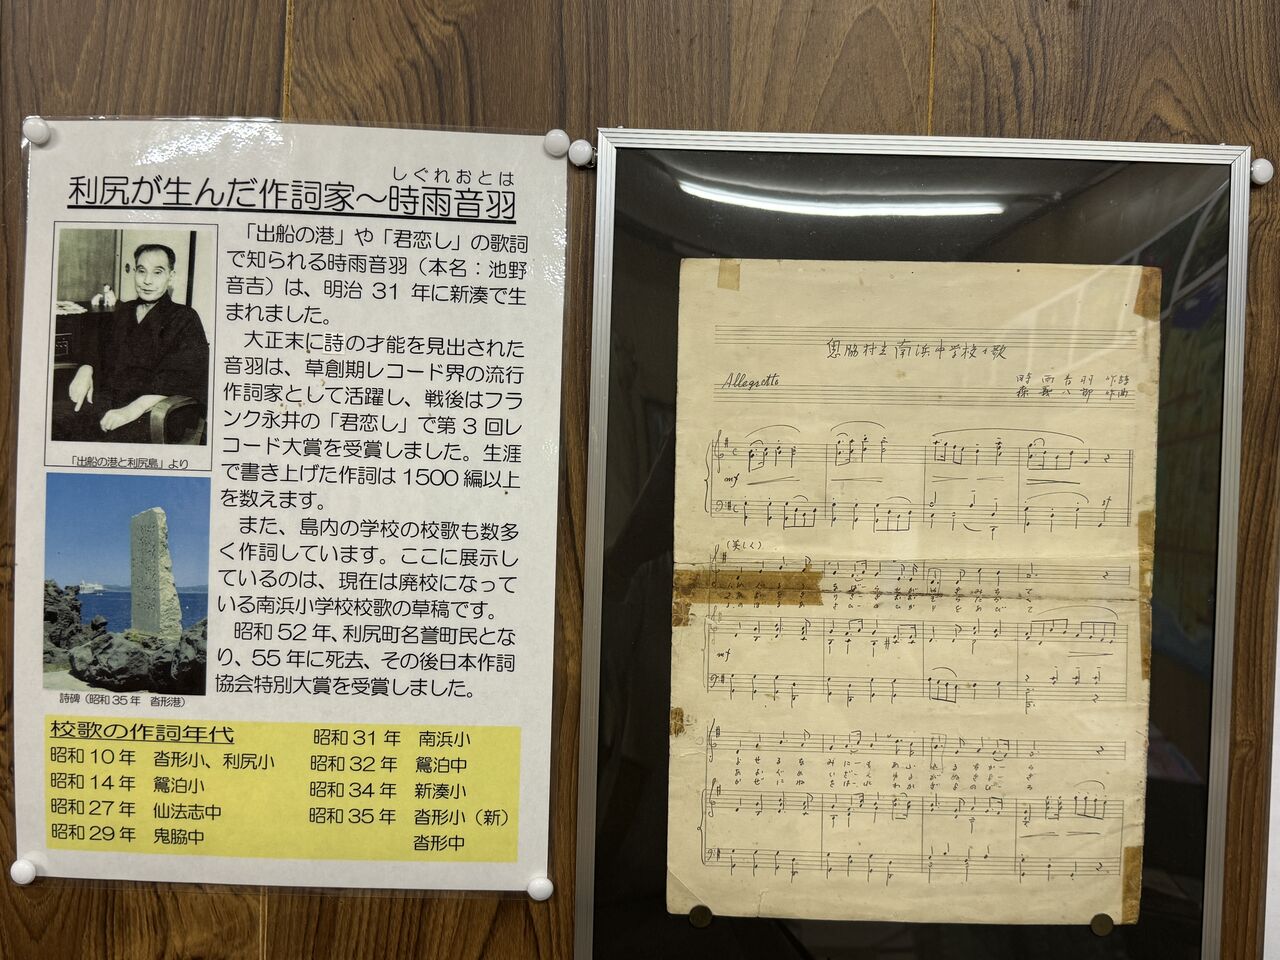 しぐれおとは
利尻が生んだ作詞家～時雨音羽
「出船の港」や「君恋し」の歌詞
で知られる時雨音羽（本名：池野
音吉）は、明治 31 年に新湊で生
まれました。
大正末に詩の才能を見出された
音羽は、草創期レコード界の流行
作詞家として活躍し、戦後はフラ
ンク永井の「君恋し」で第 3 回レ
コード大賞を受賞しました。生涯
で書き上げた作詞は 1500 編以上
を数えます。
また、島内の学校の校歌も数多
く作詞しています。ここに展示し
ているのは、現在は廃校になって
いる南浜小学校校歌の草稿です。
昭和 52 年、利尻町名誉町民とな
り、55 年に死去、その後日本作詞
協会特別大賞を受賞しました。
「出船の港と利尻島」より
詩碑（昭和 35 年　沓形港）
校歌の作詞年代
昭和 10 年　沓形小、利尻小
昭和 14 年　鴛泊小
昭和 27 年　仙法志中
昭和 29 年　鬼脇中
昭和 31 年　南浜小
昭和 32 年　鴛泊中
昭和 34 年　新湊小
昭和 35 年　沓形小（新）
沓形中
鬼脇村立南浜中学校校歌
Allegretto
時雨音羽 作詩
作曲
mf
（美しく）
mf